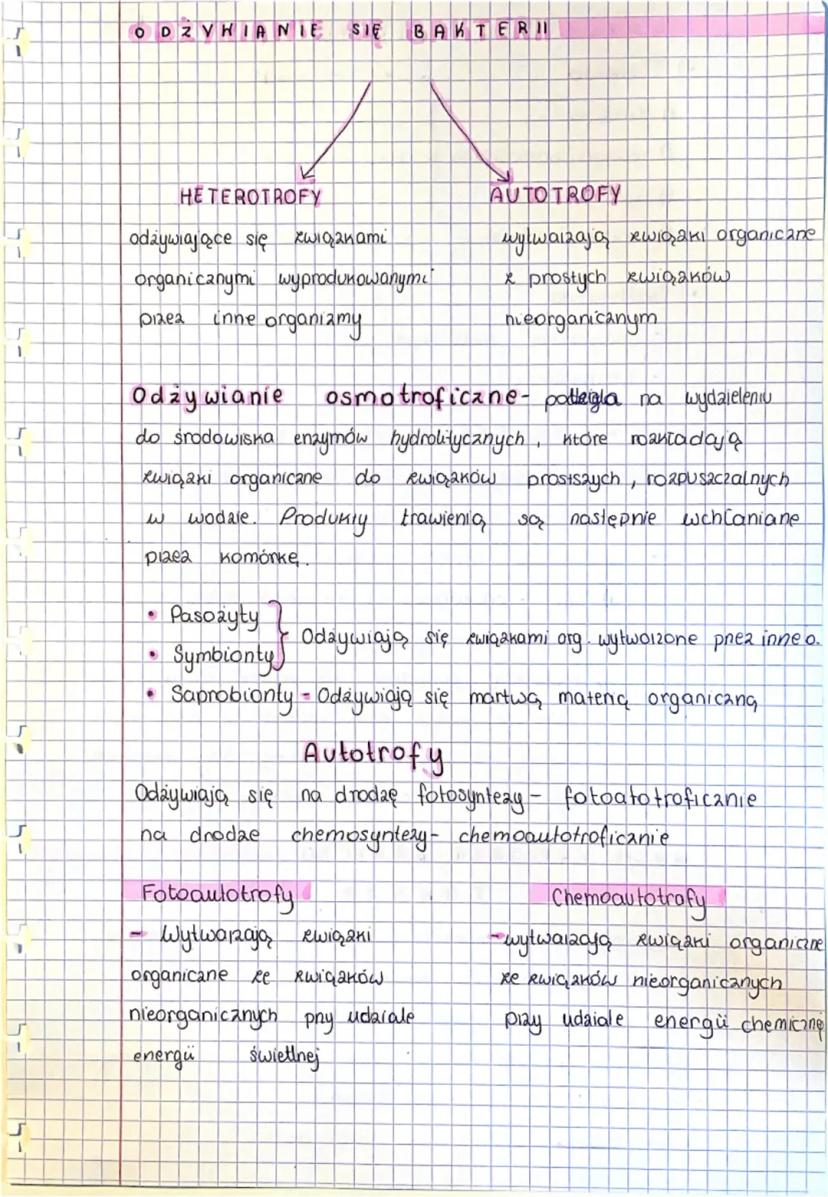 ODŻYWIANIE SIĘ BAKTERII
HETEROTROFY
odżywiające się związkami
organicznymi wyprodukowanymi
przez inne organizmy
AUTOTROFY
wytwarzają związki organiczne
z prostych związków
nieorganicznym
Odżywianie osmotroficzne - polega na wydzieleniu
do środowiska enzymów hydrolitycznych, które rozkładają
związki organiczne do związków prostszych, rozpuszczalnych
w wodzie. Produkty trawienią są następnie wchłaniane
przez komórkę.
• Pasożyty
• Symbionty
} Odżywiają się związkami org. wytworzone przez inne o.
• Saprobionty - Odżywiają się martwą materią organiczną
Autotrofy
Odżywiają się na drodzę fotosyntezy - fotoatotroficznie
na drodze chemosyntezy - chemoautotroficznie
Fotoautotrofy
- Wytwarzają związki
organiczne ze związków
nieorganicznych przy udziale
energii świetlnej
Chemoautotrofy
- wytwarzają związki organiczne
ze związków nieorganicznych
przy udziale energii chemicznej